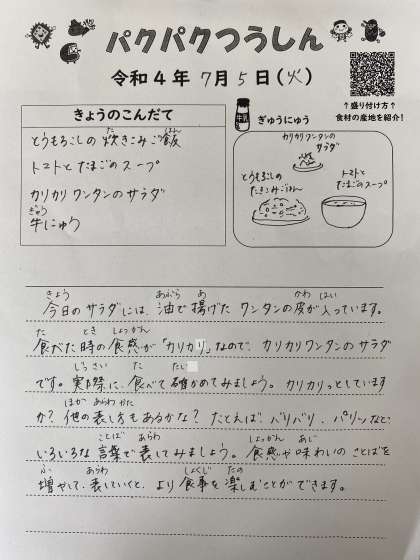 パクパクつうしん
令和4年 7月 5日(火)
↑盛り付け方↑
食材の産地を紹介!
きょうのこんだて
とうもろこしの炊きこみご飯
トマトとたまごのスープ
カリカリワンタンのサラダ
牛にゅう
牛乳
ぎゅうにゅう
カリカリワンタンの
サラダ
とうもろこしの
たきこみごはん
トマトと
たまごのスープ
今日のサラダには、油で揚げたワンタンの皮が入っています。
食べた時の食感が「カリカリ」なので、カリカリワンタンのサラダ
です。実際に、食べて確かめてみましょう。カリカリっとしています
か?他の表し方もあるかな?たとえば、バリバリ、パリッなど、
いろいろな言葉で表してみましょう。食感や味わいのことばを
増やして、表していくと、より食事を楽しむことができます。